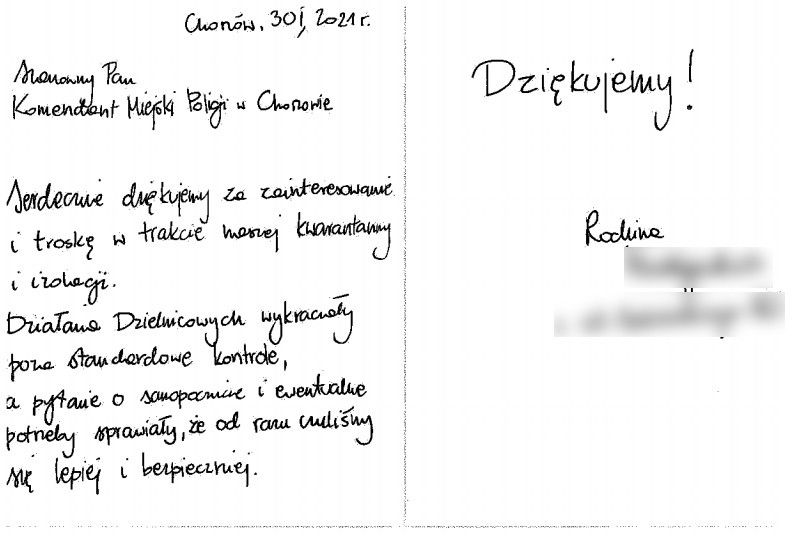 Chorzów, 30 I, 2021 r.
Szanowny Pan
Komendant Miejski Policji w Chorzowie
Serdecznie dziękujemy za zainteresowanie
i troskę w trakcie naszej kwarantanny
i izolacji.
Działania Dzielnicowych wykraczały
poza standardowe kontrole,
a pytanie o samopoczucie i ewentualne
potrzeby sprawiały, że od razu czuliśmy
się lepiej i bezpieczniej.
Dziękujemy!
Rodzina